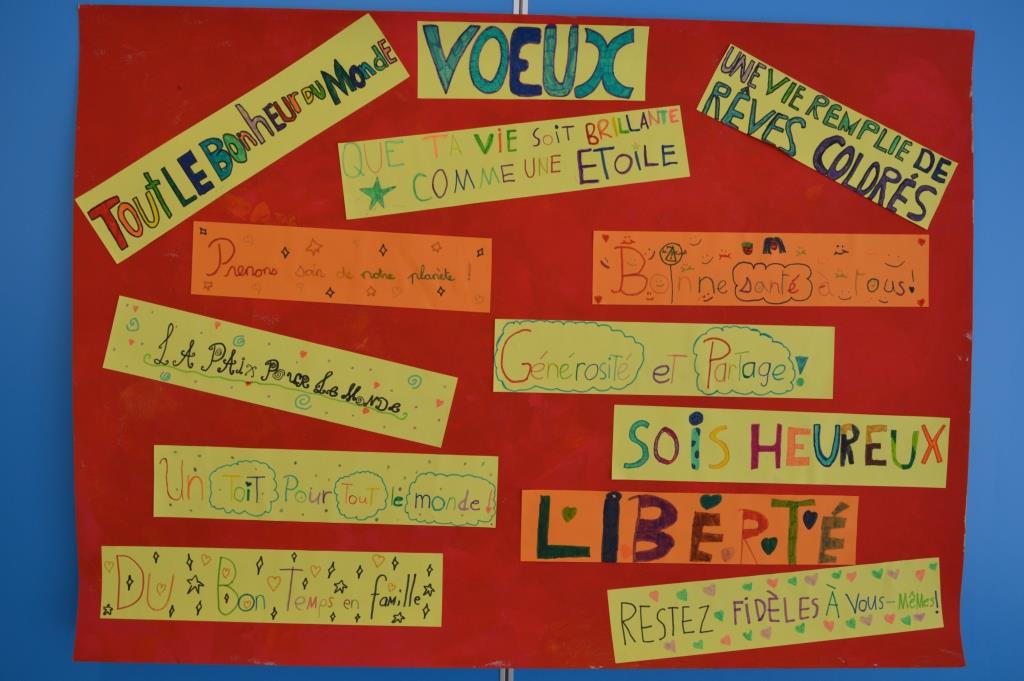 VOEUX
TOUT LE BONHEUR DU MONDE
QUE TA VIE SOIT BRILLANTE
COMME UNE ETOILE
UNE VIE REMPLIE DE
RÊVES COLORÉS
Prenons soin de notre planète !
Bonne santé à tous!
LA PAIX POUR LE MONDE
Générosité et Partage !
SOIS HEUREUX
Un TOIT Pour TOUT le monde !
LIBÉRTÉ
DU Bon Temps en famille
RESTEZ FIDÈLES À VOUS-MÊMES!